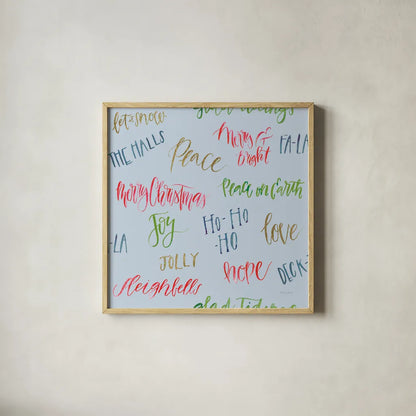 glad tidings
let it snow
Merry &
bright
FA-LA
THE HALLS
Peace
Merry Christmas
Peace on Earth
Joy
HO-HO
-HO
love
-LA
JOLLY
hope
DECK-
Sleighbells
glad tidings